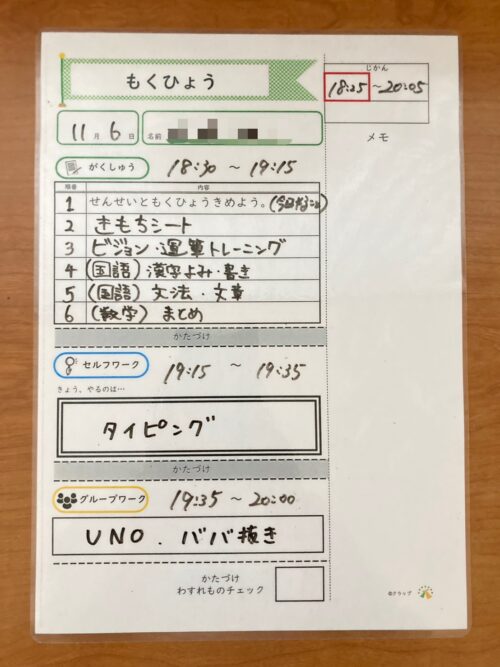 もくひょう
じかん
18:25 ~ 20:05
メモ
11月6日
名前
がくしゅう 18:30 ~ 19:15
順番 内容
1 せんせいともくひょうきめよう。
2 きもちシート
3 ビジョン・運筆トレーニング
4 (国語) 漢字よみ・書き
5 (国語) 文法・文章
6 (数学) まとめ
かたづけ
セルフワーク 19:15 ~ 19:35
きょう、やるのは…
タイピング
かたづけ
グループワーク 19:35 ~ 20:00
UNO. ババ抜き
かたづけ
わすれものチェック
©クラップ